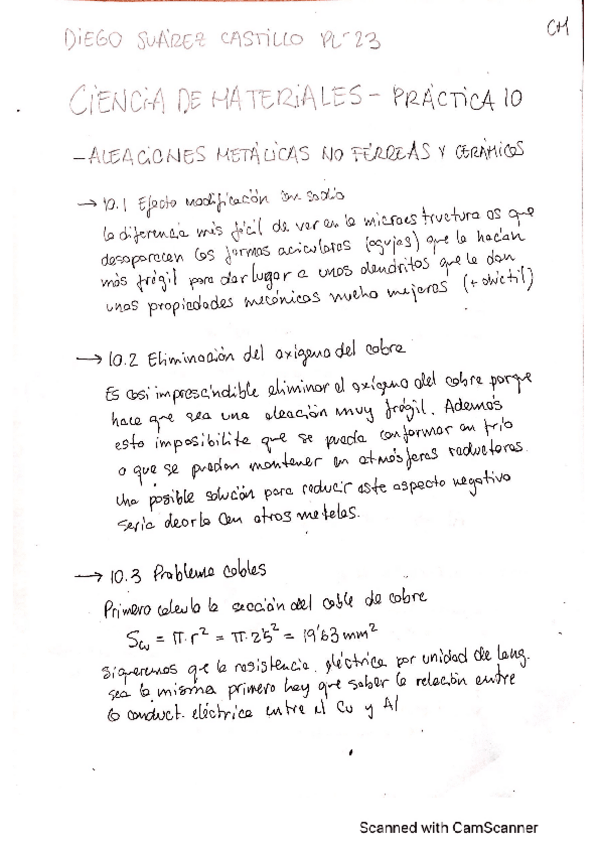 CM
DIEGO SUÁREZ CASTILLO PL-23
CIENCIA DE MATERIALES - PRÁCTICA 10
- ALEACIONES METÁLICAS NO FÉRREAS Y CERÁMICOS
→ 10.1 Efecto modificación con sodio
la diferencia más fácil de ver en la microestructura es que
desaparecen las formas aciculares (agujas) que la hacían
más frágil para dar lugar a unas dendritas que le dan
unas propiedades mecánicas mucho mejores (+ dúctil)
→ 10.2 Eliminación del oxígeno del cobre
Es casi imprescindible eliminar el oxígeno del cobre porque
hace que sea una aleación muy frágil. Además
esto imposibilita que se pueda conformar en frío
o que se puedan mantener en atmósferas reductoras.
Una posible solución para reducir este aspecto negativo
sería alearla con otros metales.
→ 10.3 Problema cables
Primero calculo la sección del cable de cobre
Scu = π·r² = π·2'5² = 19'63 mm²
Si queremos que la resistencia eléctrica por unidad de long.
sea la misma primero hay que saber la relación entre
la conduct. eléctrica entre el Cu y Al
Scanned with CamScanner